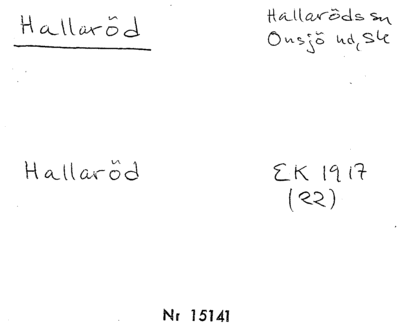 Hallaröd
Hallaröds sn
Onsjö hd, Sk
Hallaröd
EK 1917
(22)
Nr 15141